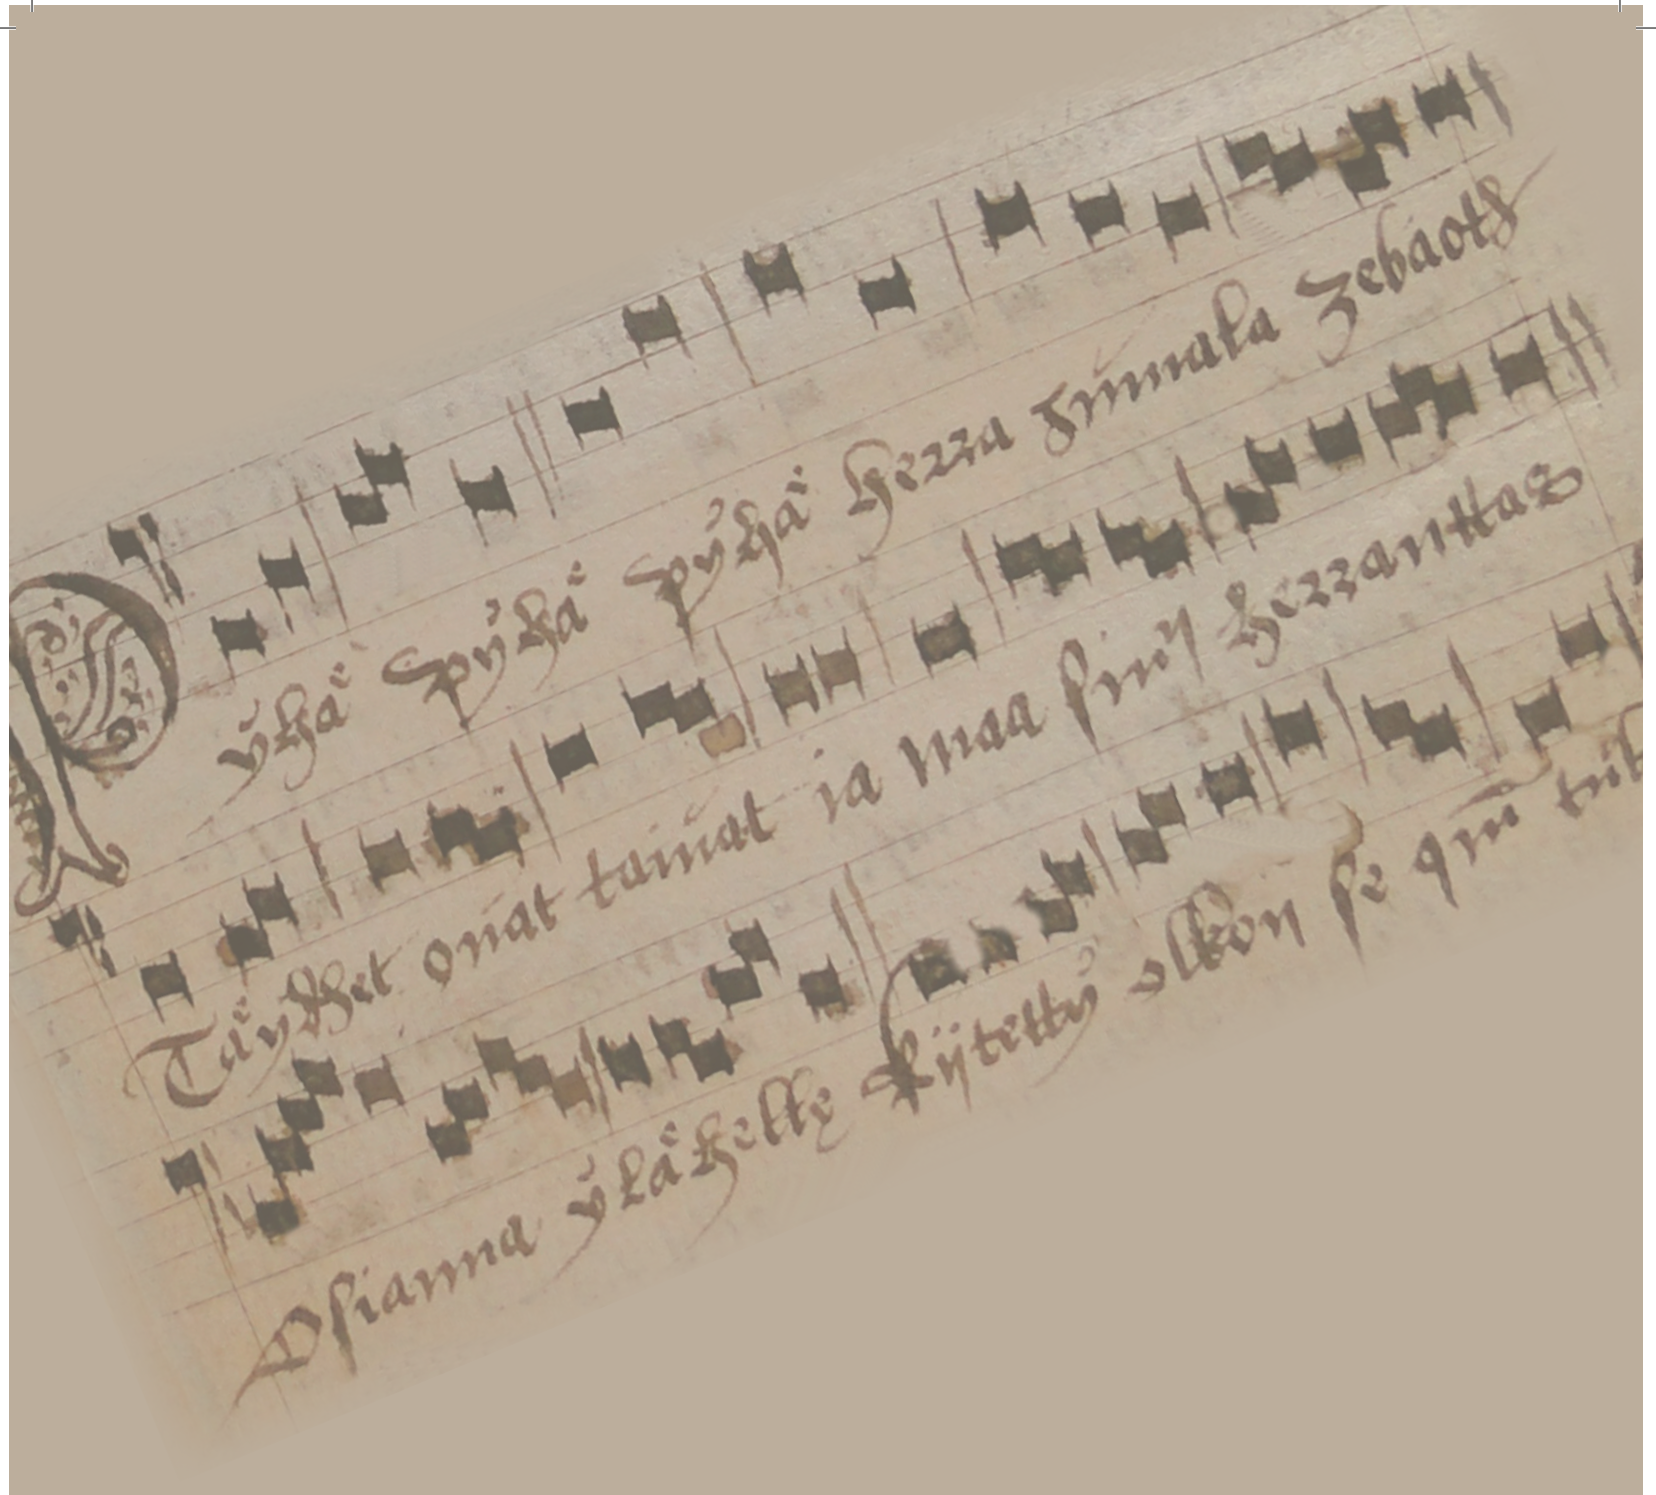 Pÿhå pÿhå pÿhå herra Jumala Zebaoth
Tåydhet onat taiuat ia maa sinū herranttas
Osianna ÿlåhellȩ kijtettÿ olkon se quī tule